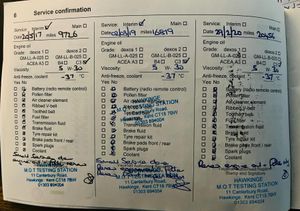 6 Service confirmation
Service: Interim Main
Date miles 9726
Engine oil
Grade: dexos 1 dexos 2
GM-LL-A-025 GM-LL-B-025
ACEA A3 B4 C3
Viscosity: 5 W 30
Anti-freeze, coolant -37 °C
Yes No
Battery (radio remote control)
Pollen filter
Air cleaner element
Ribbed V-belt
Toothed belt
Fuel filter
Transmission fluid
Brake fluid
Tyre repair kit
Brake pads front / rear
Spark plugs
Coolant
M.O.T TESTING STATION
11 Canterbury Road,
Hawkinge, Kent CT18 7BW
01303 894004
Service: Interim Main
Date miles
Engine oil
Grade: dexos 1 dexos 2
GM-LL-A-025 GM-LL-B-025
ACEA A3 B4 C3
Viscosity: 5 W 30
Anti-freeze, coolant -37 °C
Yes No
Battery (radio remote control)
Pollen filter
Air cleaner element
Ribbed V-belt
Toothed belt
Fuel filter
Transmission fluid
Brake fluid
Tyre repair kit
Brake pads front / rear
Spark plugs
Coolant
M.O.T TESTING STATION
11 Canterbury Road,
Hawkinge, Kent CT18 7BW
01303 894004
Service: Interim Main
Date miles
Engine oil
Grade: dexos 1 dexos 2
GM-LL-A-025 GM-LL-B-025
ACEA A3 B4 C3
Viscosity: 5 W 30
Anti-freeze, coolant -37 °C
Yes No
Battery (radio remote control)
Pollen filter
Air cleaner element
Ribbed V-belt
Toothed belt
Fuel filter
Transmission fluid
Brake fluid
Tyre repair kit
Brake pads front / rear
Spark plugs
Coolant
Stamp and Signature
HAWKINGE
M.O.T TESTING STATION
11 Canterbury Road,
Hawkinge, Kent CT18 7BW
01303 894004